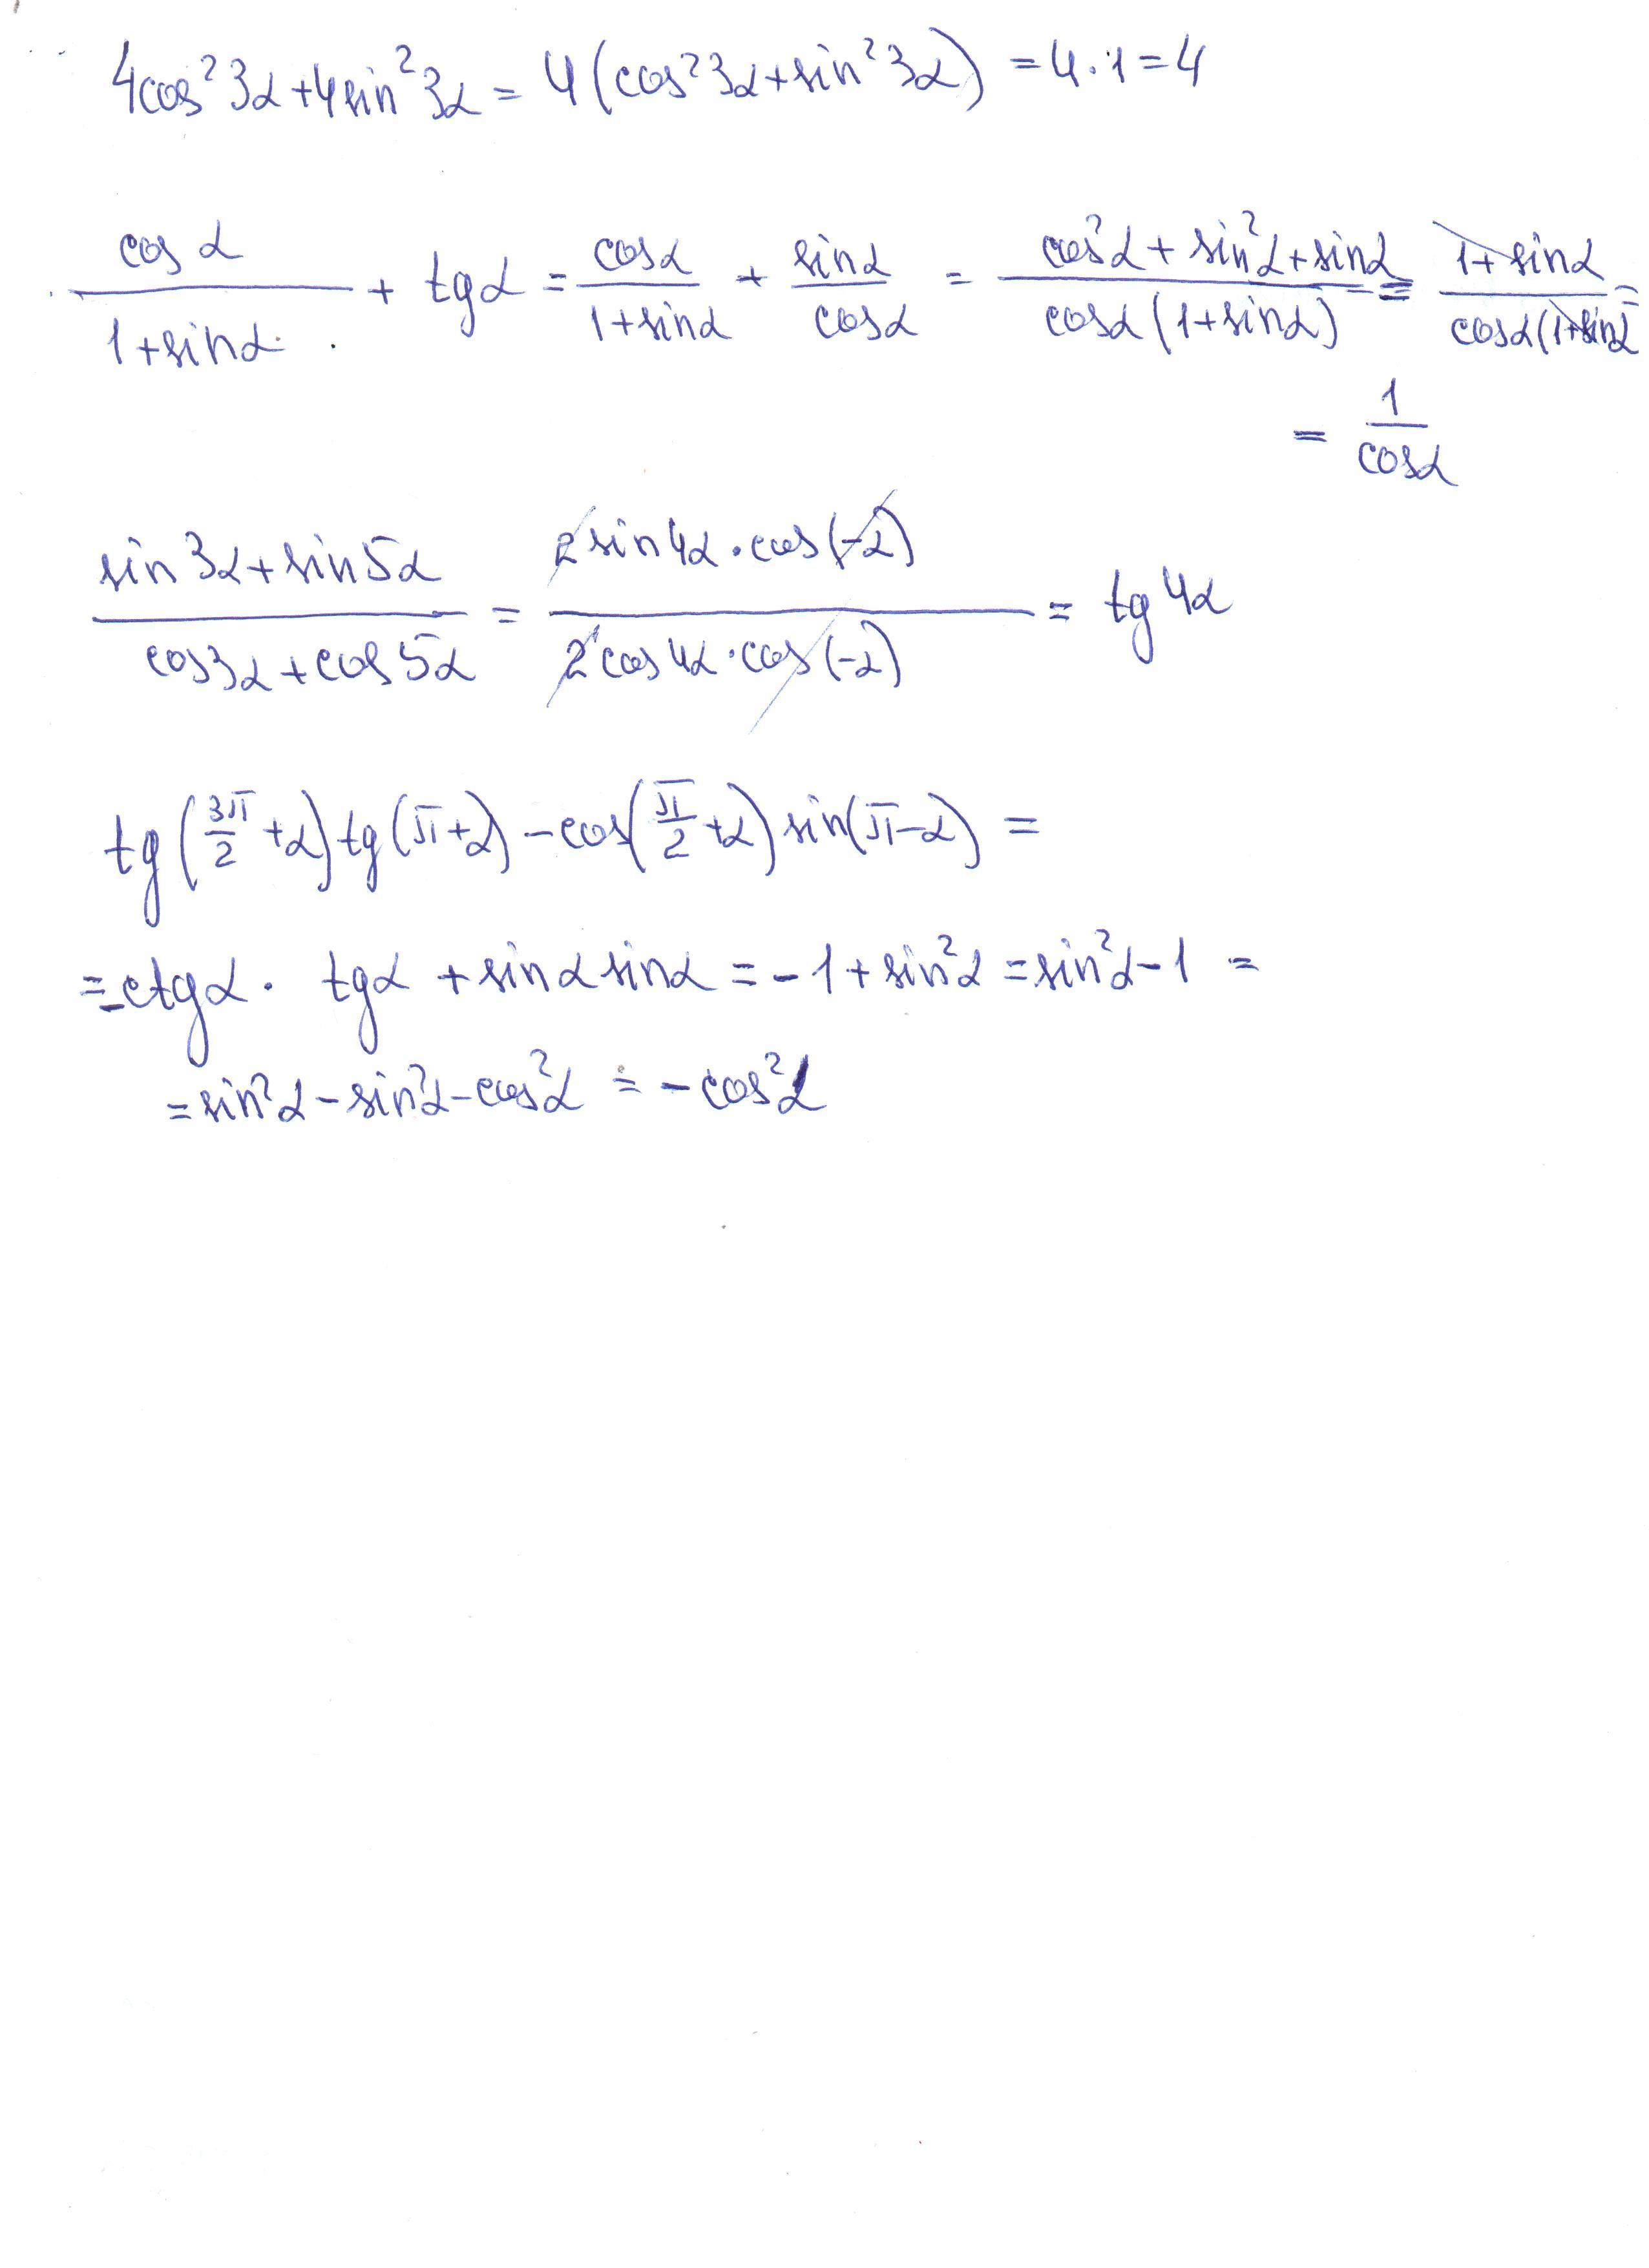 4cos²3α+4sin²3α = 4(cos²3α+sin²3α) = 4·1=4
cos α / 1+sinα + tgα = cosα / 1+sinα + sinα / cosα = cos²α + sin²α+sinα / cosα(1+sinα) = 1+sinα / cosα(1+sinα =
= 1 / cosα
sin3α+sin5α / cos3α+cos5α = 2sin4α·cos(-α) / 2cos4α·cos(-α) = tg4α
tg(3π/2 +α)tg(π+α) -cos(π/2 +α)sin(π-α) =
=-ctgα · tgα +sinα sinα = -1+sin²α =sin²α-1 =
=sin²α-sin²α-cos²α = -cos²α